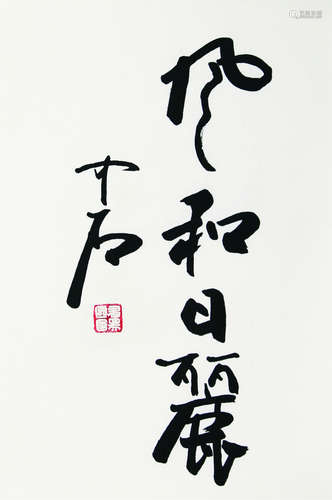 风和日麗
中石